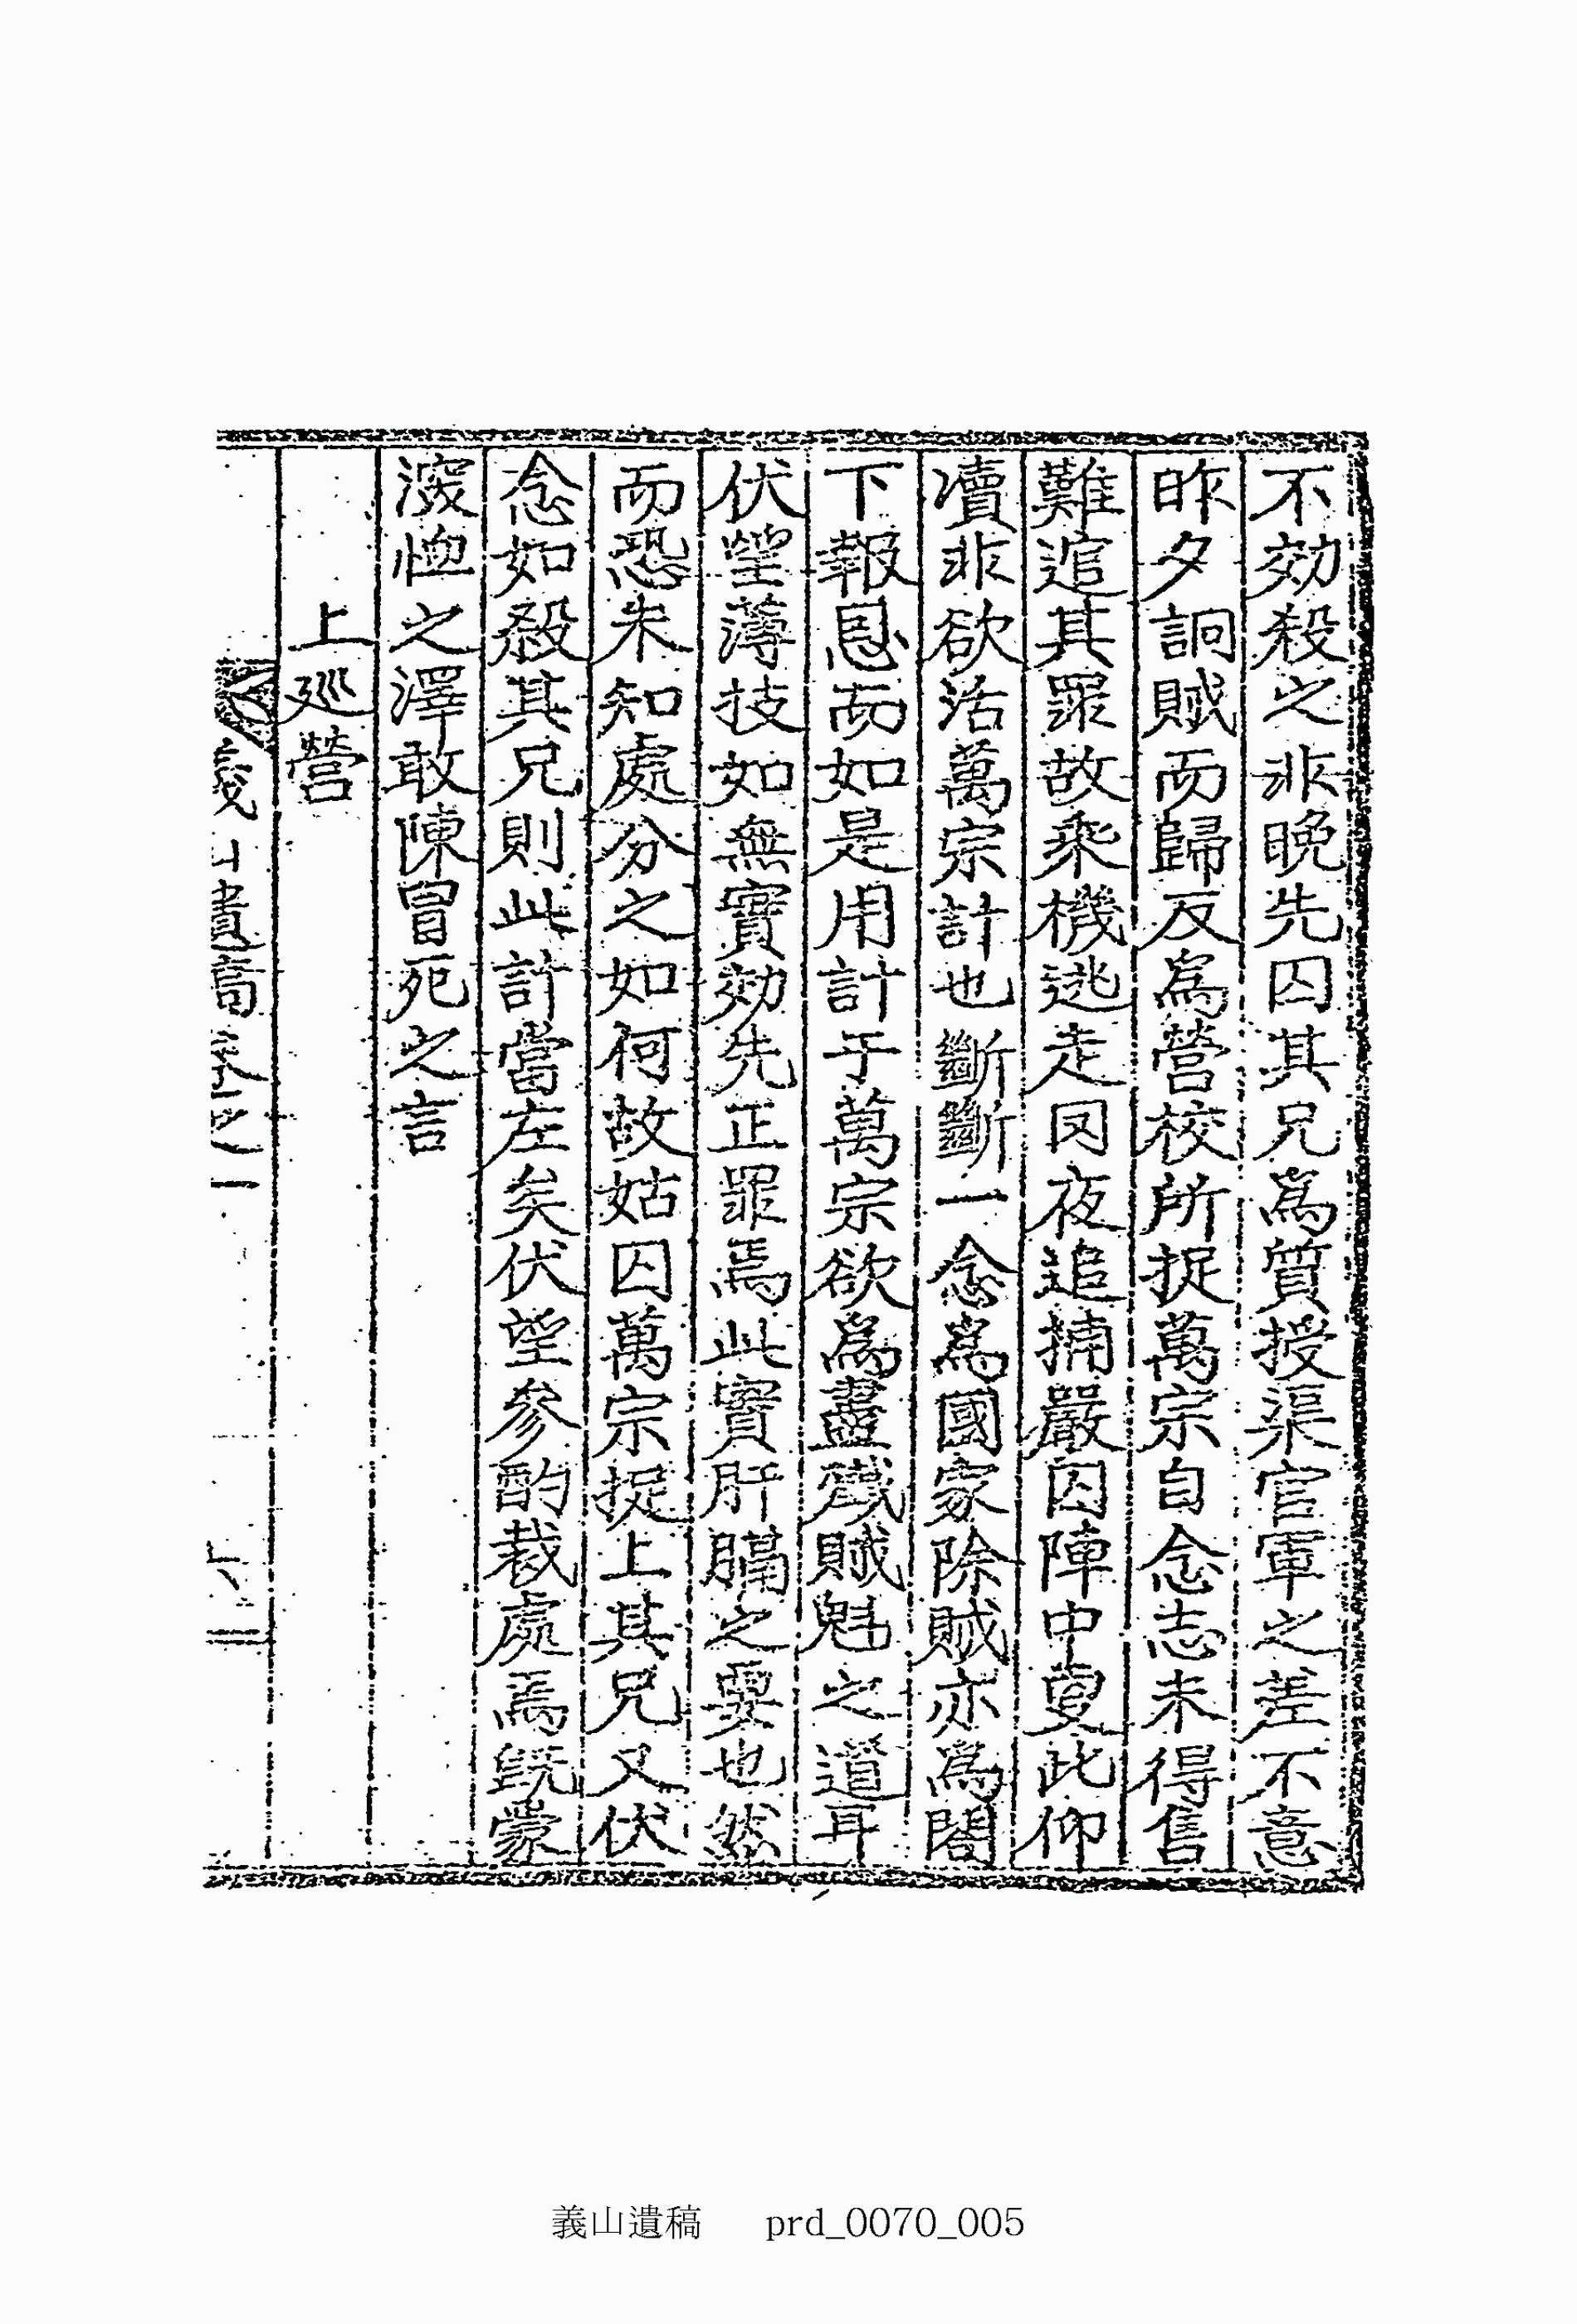 不効殺之非晩先囚其兄爲質授渠官軍之差不意
昨夕詗賊而歸反爲營校所捉萬宗自念志未得售
難逭其罪故乘機逃走罔夜追捕嚴囚陣中叓此仰
凟非欲活萬宗計也斷斷一念爲國家除賊亦爲閤
下報恩而如是用計于萬宗欲爲盡殱賊魁之道耳
伏望薄技如無實効先正罪焉此實肝膈之要也然
而恐未知處分之如何故姑囚萬宗捉上其兄又伏
念如殺其兄則此計當左矣伏望參酌裁處焉旣蒙
深恤之澤敢陳冒死之言
上巡營
義山遺稿卷之一